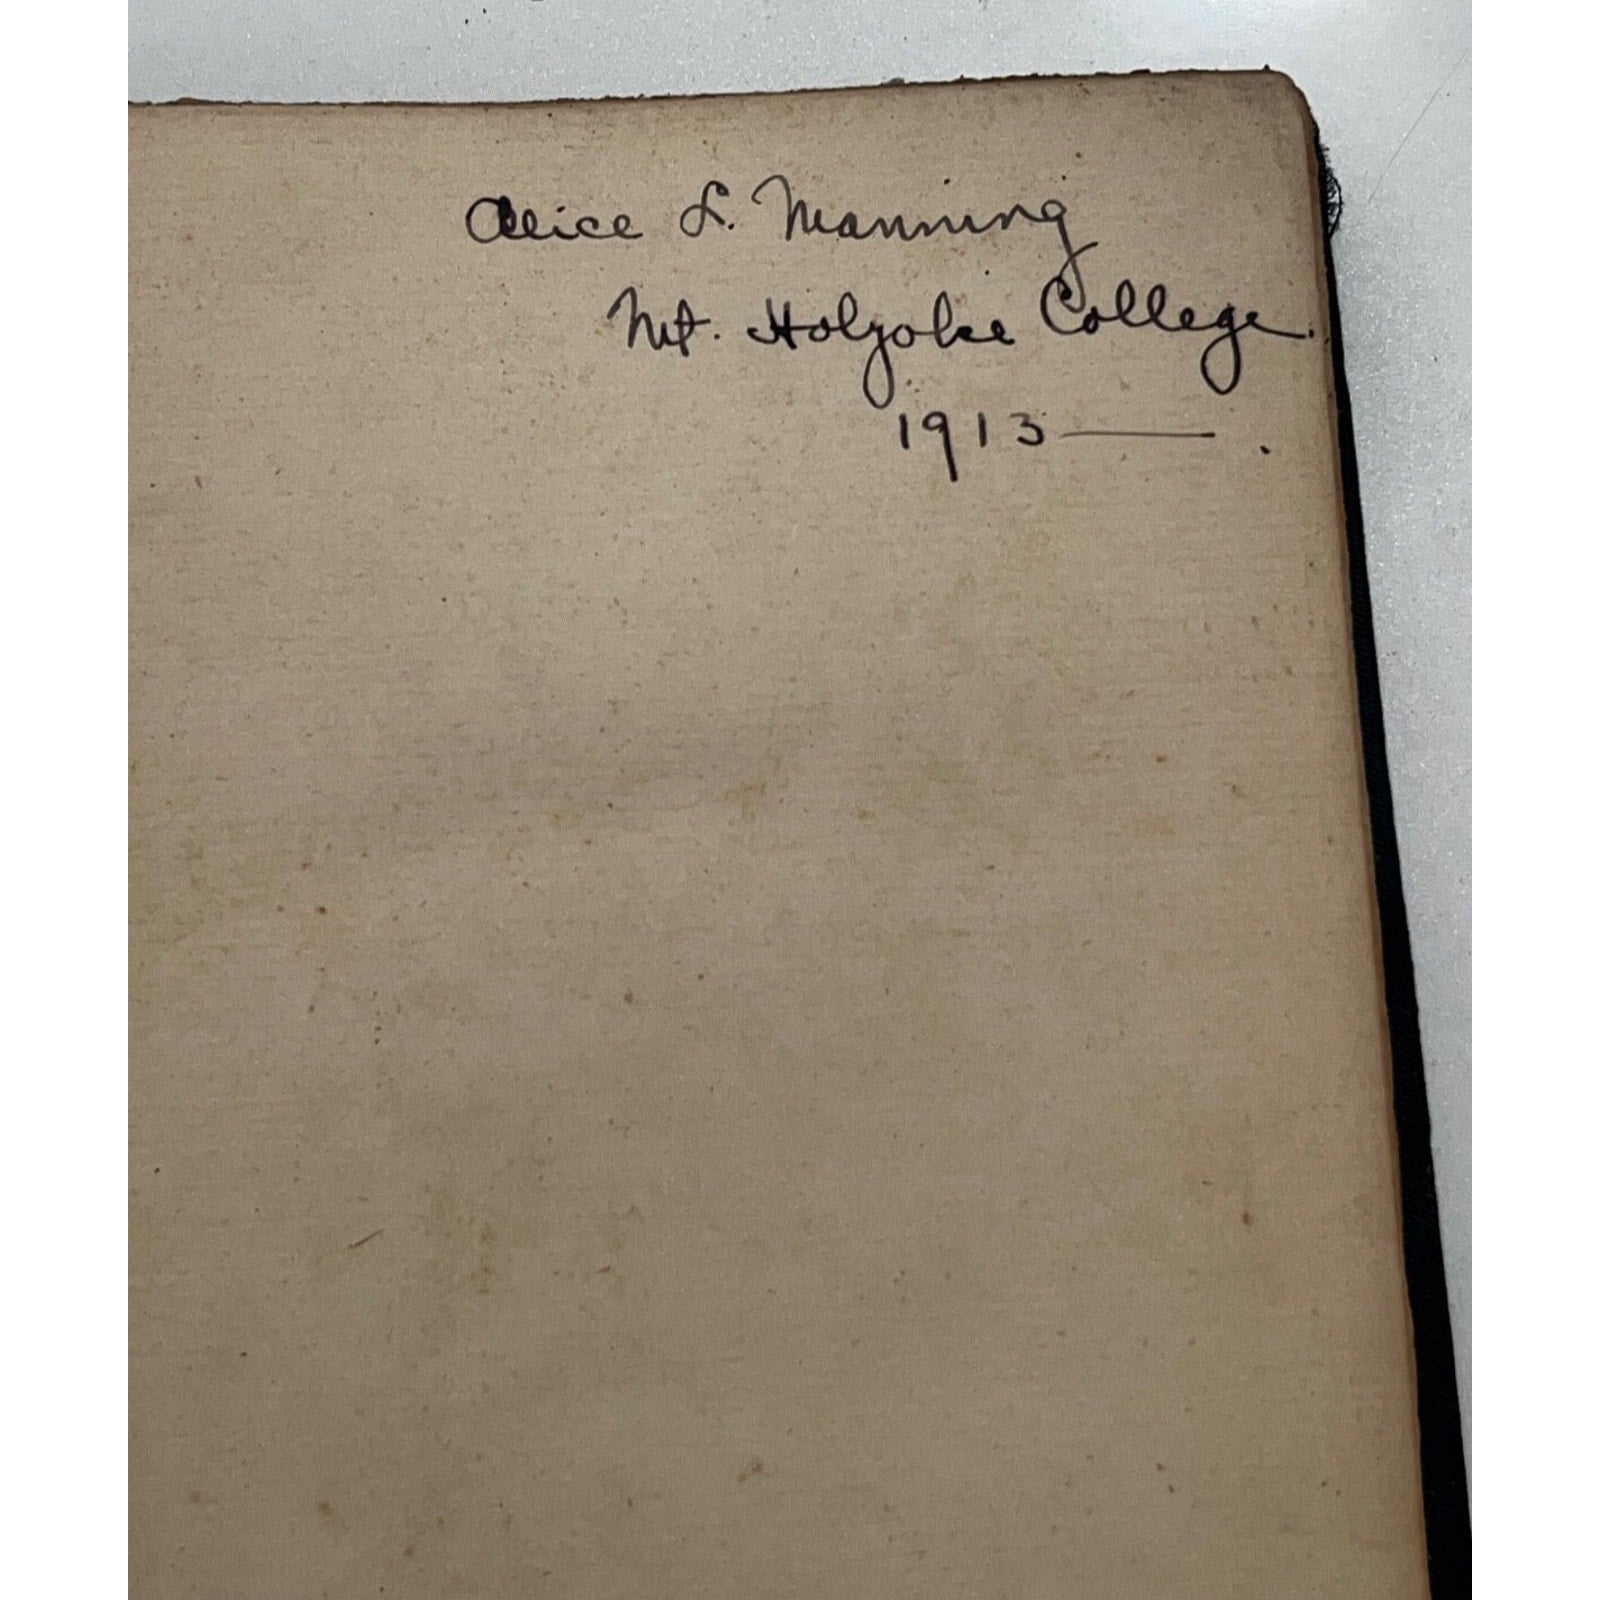 Alice L. Manning
Mt. Holyoke College.
1913——.